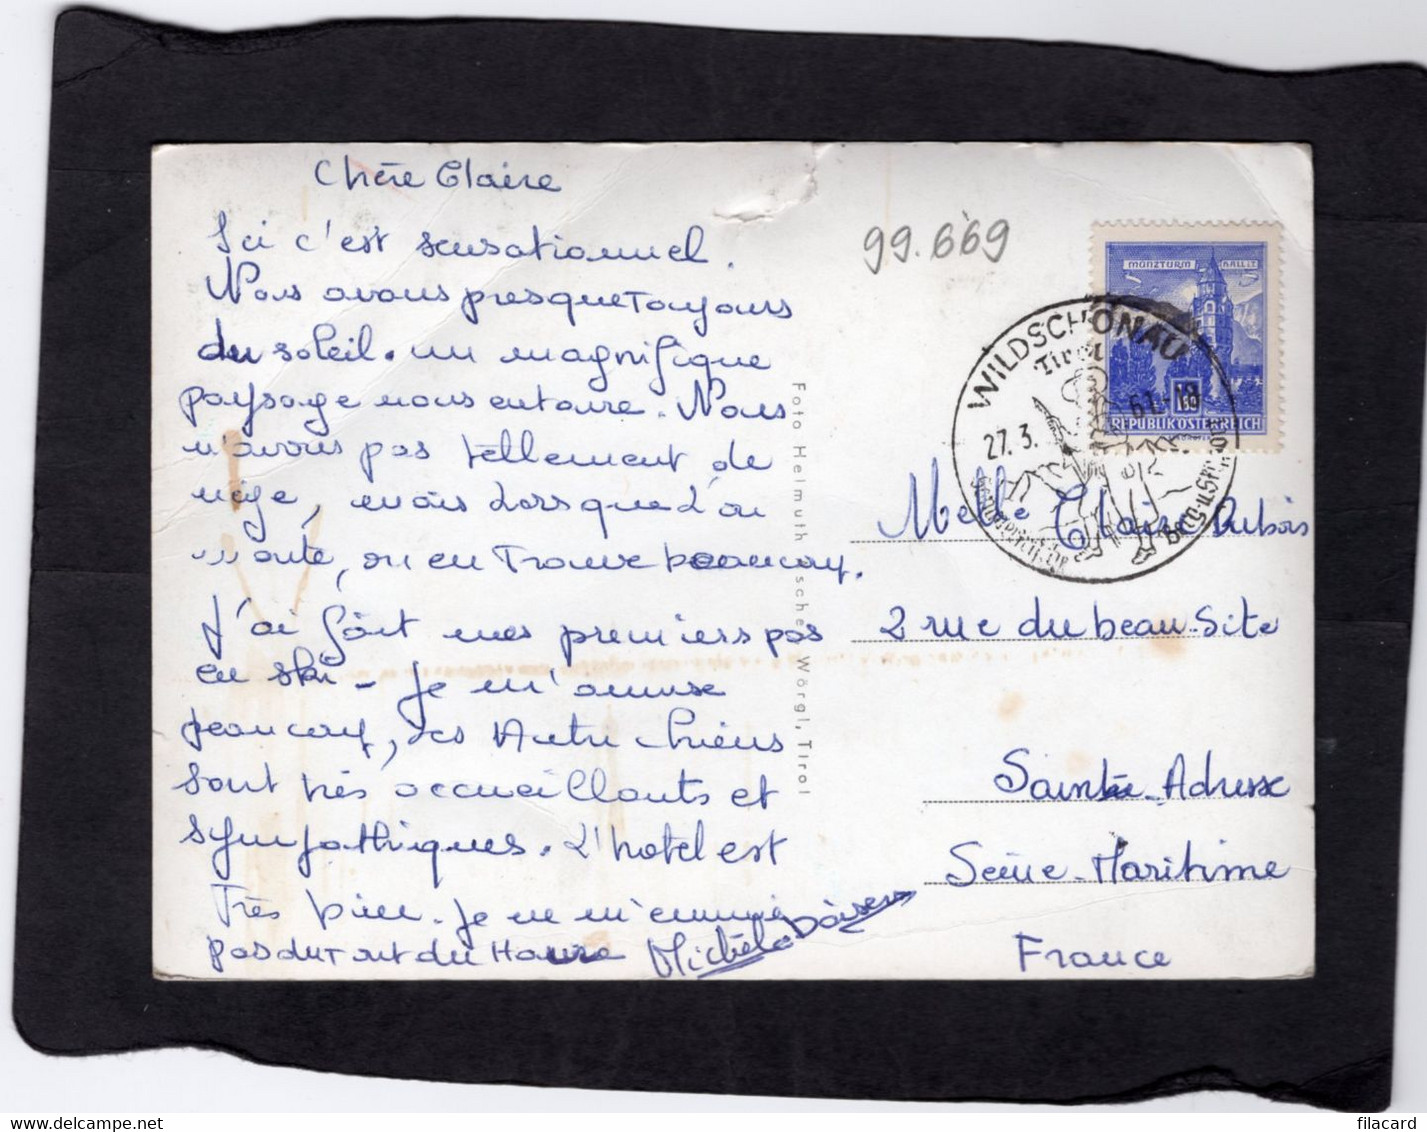 Chère Claire
Ici c'est sensationnel.
Nous avons presque toujours
du soleil. un magnifique
paysage nous entoure. Nous
n'avons pas tellement de
neige, mais lorsque l'on
monte, on en trouve beaucoup.
J'ai fait mes premiers pas
en ski - je m'amuse
beaucoup, les Autrichiens
sont très accueillants et
sympathiques. L'hotel est
Très bien. je ne m'ennuie
pas du tout du Havre Michèle
Foto Helmuth Wörgl, Tirol
99.669
MÜNZTURM HALL i.T.
REPUBLIK ÖSTERREICH
WILDSCHÖNAU
Tirol
27. 3. 61.-18
Melle Claire Dubois
2 rue du beau-Site
Sainte-Adresse
Seine-Maritime
France
filacard
www.delcampe.net